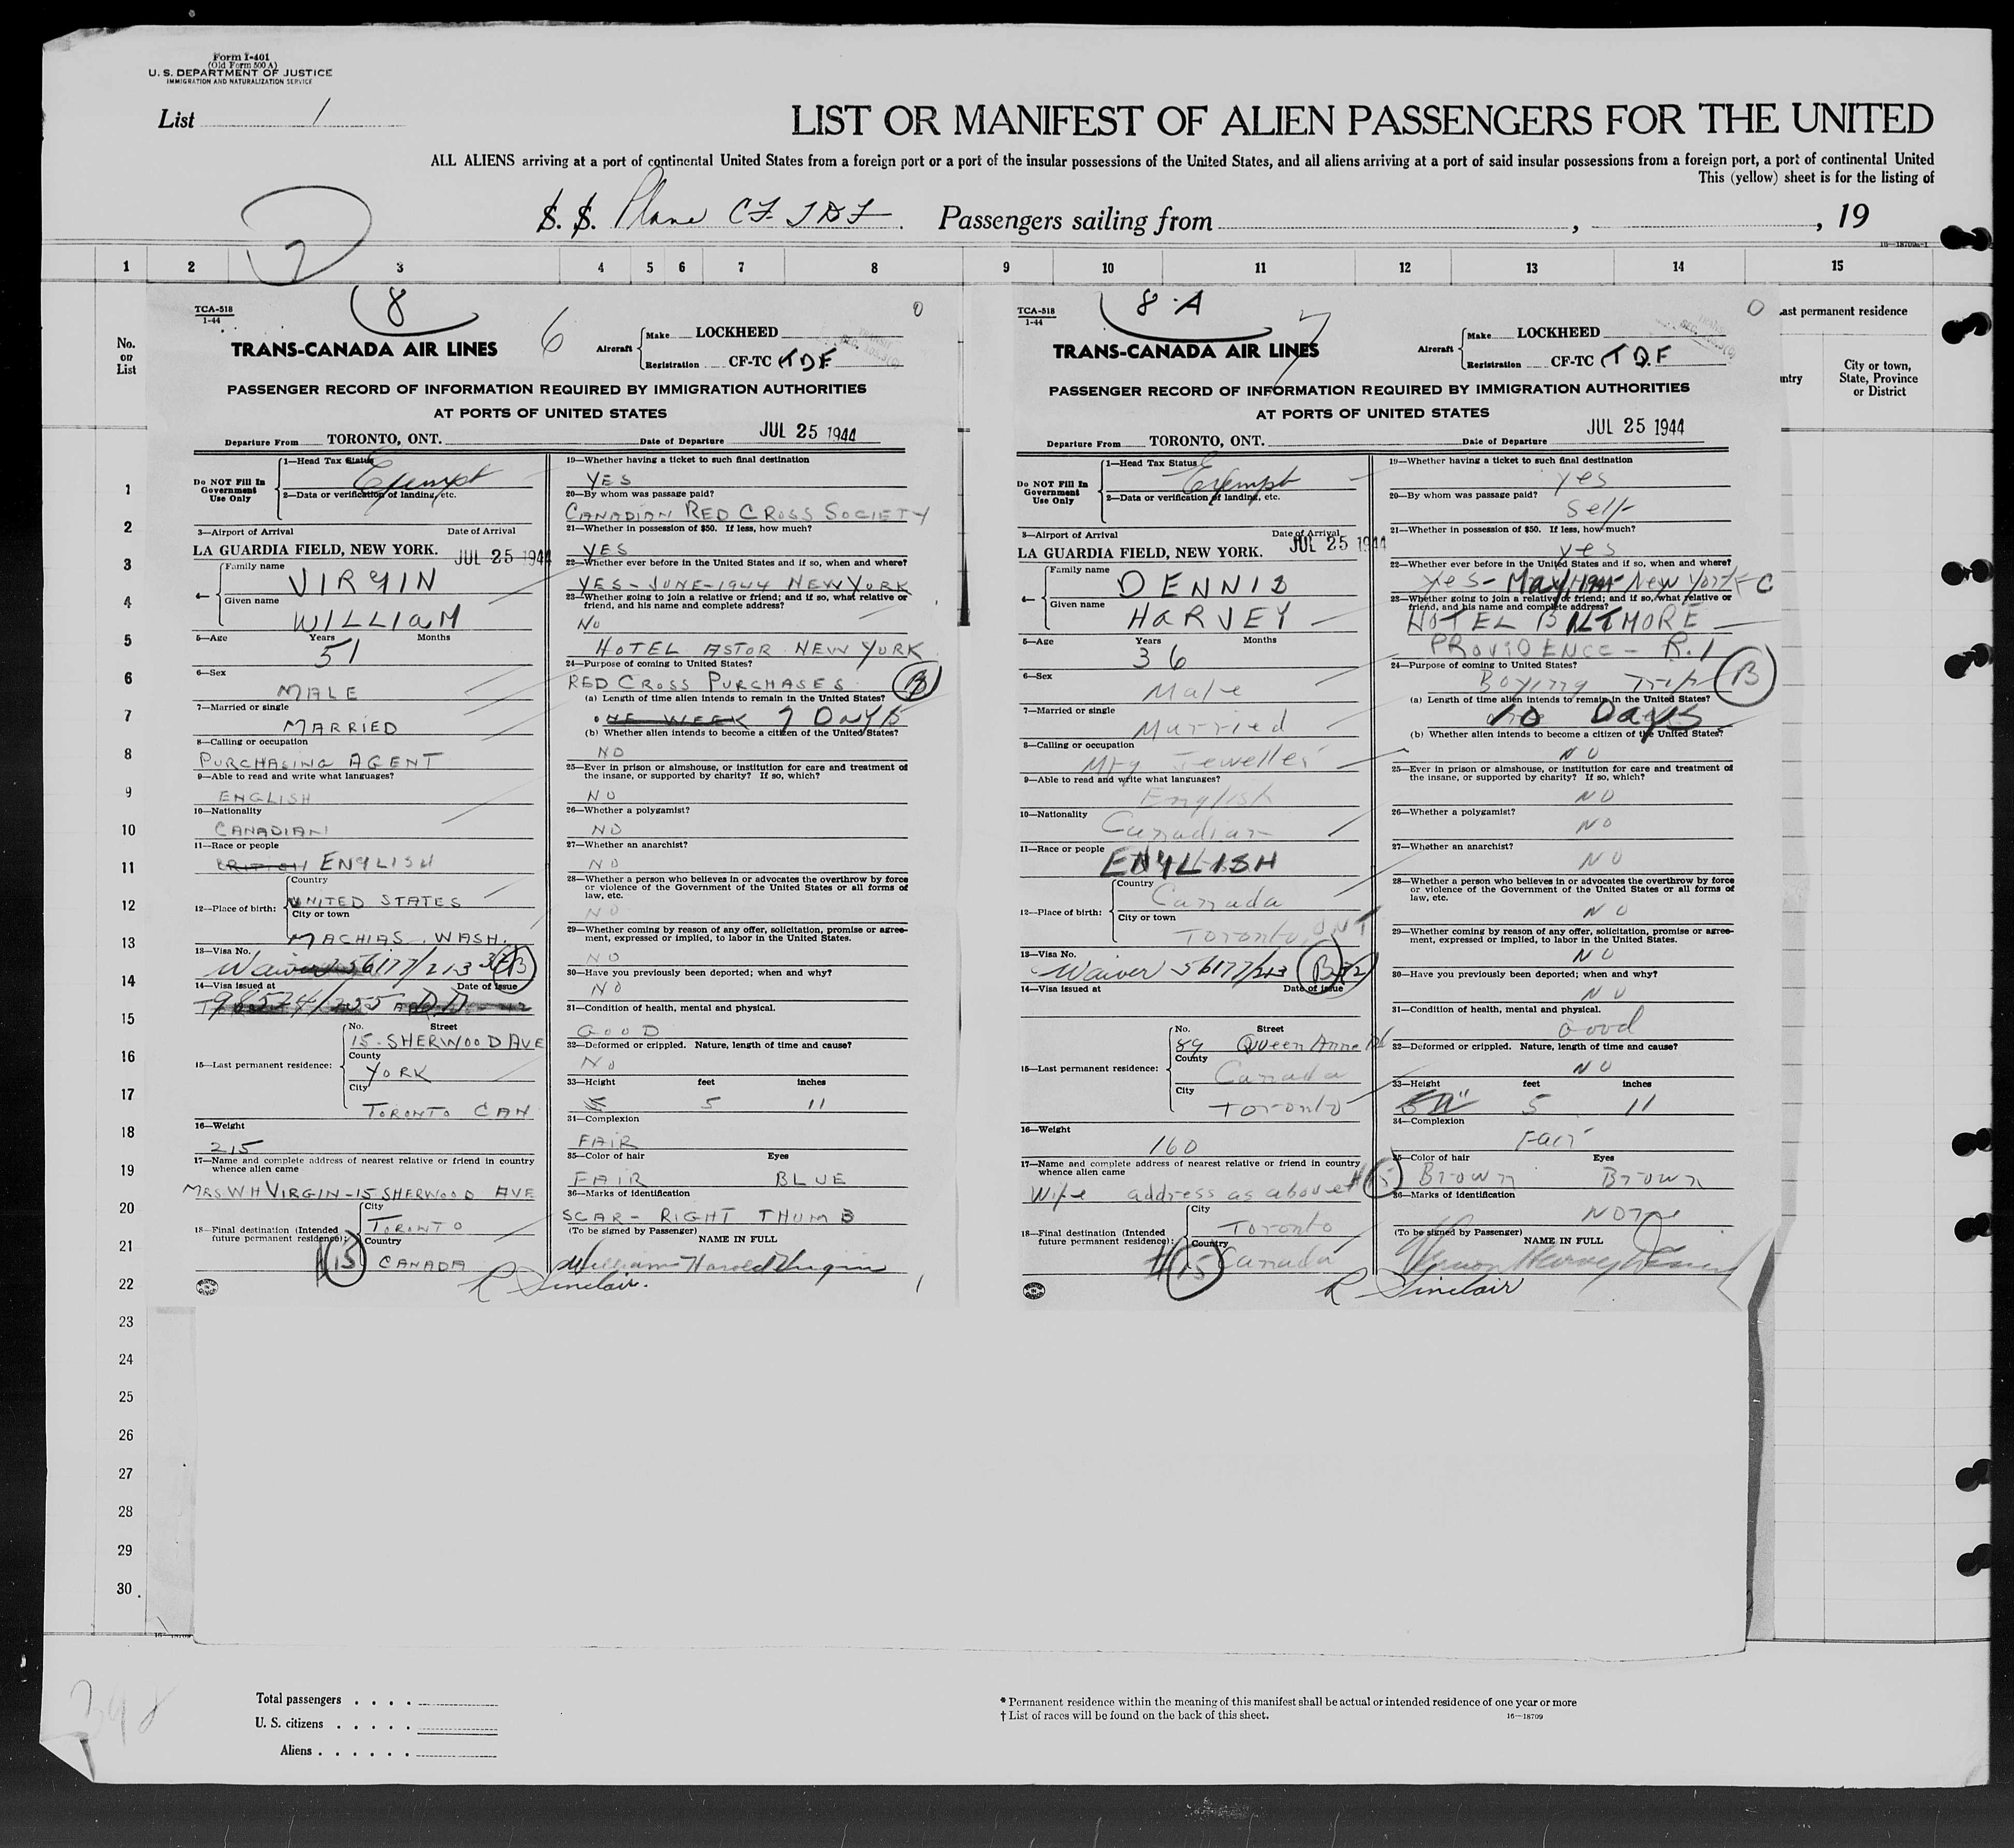 Form I-401
(Old Form 500 A)
U. S. DEPARTMENT OF JUSTICE
IMMIGRATION AND NATURALIZATION SERVICE
List 1
LIST OR MANIFEST OF ALIEN PASSENGERS FOR THE UNITED
ALL ALIENS arriving at a port of continental United States from a foreign port or a port of the insular possessions of the United States, and all aliens arriving at a port of said insular possessions from a foreign port, a port of continental United
This (yellow) sheet is for the listing of
2
S. S. Plane CF TDF Passengers sailing from , , 19
16—18709a-1
1 2 3 4 5 6 7 8 9 10 11 12 13 14 15
No. on List
TCA-518
1-44
8
6
0
TRANS-CANADA AIR LINES
Aircraft Make LOCKHEED
Registration CF-TC TDF
PASSENGER RECORD OF INFORMATION REQUIRED BY IMMIGRATION AUTHORITIES
AT PORTS OF UNITED STATES
Departure From TORONTO, ONT. Date of Departure JUL 25 1944
Do NOT Fill In Government Use Only
1—Head Tax Status
Exempt
2—Data or verification of landing, etc.
3—Airport of Arrival Date of Arrival
LA GUARDIA FIELD, NEW YORK. JUL 25 1944
4— Family name
VIRGIN
Given name
WILLIAM
5—Age Years Months
51
6—Sex
MALE
7—Married or single
MARRIED
8—Calling or occupation
PURCHASING AGENT
9—Able to read and write what languages?
ENGLISH
10—Nationality
CANADIAN
11—Race or people
BRITISH ENGLISH
12—Place of birth: Country
UNITED STATES
City or town
MACHIAS, WASH.
13—Visa No.
Waiver 56177/213 3 (B)
14—Visa issued at Date of issue
98574/255
15—Last permanent residence: No. Street
15 - SHERWOOD AVE
County
YORK
City
TORONTO CAN
16—Weight
215
17—Name and complete address of nearest relative or friend in country whence alien came
MRS W H VIRGIN - 15 SHERWOOD AVE
18—Final destination (Intended future permanent residence): City
TORONTO
Country
CANADA
15
19—Whether having a ticket to such final destination
YES
20—By whom was passage paid?
CANADIAN RED CROSS SOCIETY
21—Whether in possession of $50. If less, how much?
YES
22—Whether ever before in the United States and if so, when and where?
YES - JUNE - 1944 NEW YORK
23—Whether going to join a relative or friend; and if so, what relative or friend, and his name and complete address?
NO
HOTEL ASTOR NEW YORK
24—Purpose of coming to United States?
RED CROSS PURCHASES (B)
(a) Length of time alien intends to remain in the United States?
ONE WEEK 7 DAYS
(b) Whether alien intends to become a citizen of the United States?
NO
25—Ever in prison or almshouse, or institution for care and treatment of the insane, or supported by charity? If so, which?
NO
26—Whether a polygamist?
NO
27—Whether an anarchist?
NO
28—Whether a person who believes in or advocates the overthrow by force or violence of the Government of the United States or all forms of law, etc.
NO
29—Whether coming by reason of any offer, solicitation, promise or agreement, expressed or implied, to labor in the United States.
NO
30—Have you previously been deported; when and why?
NO
31—Condition of health, mental and physical.
GOOD
32—Deformed or crippled. Nature, length of time and cause?
NO
33—Height feet inches
5 11
34—Complexion
FAIR
35—Color of hair Eyes
FAIR BLUE
36—Marks of identification
SCAR - RIGHT THUMB
(To be signed by Passenger)
NAME IN FULL
William Harold Virgin
R Sinclair.
TCA-518
1-44
8 A
7
0
TRANS-CANADA AIR LINES
Aircraft Make LOCKHEED
Registration CF-TC TDF
PASSENGER RECORD OF INFORMATION REQUIRED BY IMMIGRATION AUTHORITIES
AT PORTS OF UNITED STATES
Departure From TORONTO, ONT. Date of Departure JUL 25 1944
Do NOT Fill In Government Use Only
1—Head Tax Status
Exempt
2—Data or verification of landing, etc.
3—Airport of Arrival Date of Arrival
LA GUARDIA FIELD, NEW YORK. JUL 25 1944
4— Family name
DENNIS
Given name
HARVEY
5—Age Years Months
36
6—Sex
Male
7—Married or single
Married
8—Calling or occupation
Mfg Jeweller
9—Able to read and write what languages?
English
10—Nationality
Canadian
11—Race or people
ENGLISH
12—Place of birth: Country
Canada
City or town
Toronto, ONT
13—Visa No.
Waiver 56177/213 (B)
14—Visa issued at Date of issue
15—Last permanent residence: No. Street
89 Queen Anne Rd
County
Canada
City
Toronto
16—Weight
160
17—Name and complete address of nearest relative or friend in country whence alien came
Wife address as above
18—Final destination (Intended future permanent residence): City
Toronto
Country
Canada
15
19—Whether having a ticket to such final destination
yes
20—By whom was passage paid?
Self
21—Whether in possession of $50. If less, how much?
yes
22—Whether ever before in the United States and if so, when and where?
yes - May, 1944 - New York
23—Whether going to join a relative or friend; and if so, what relative or friend, and his name and complete address?
HOTEL BILTMORE
PROVIDENCE - R.I
24—Purpose of coming to United States?
Buying Trip (B)
(a) Length of time alien intends to remain in the United States?
10 Days
(b) Whether alien intends to become a citizen of the United States?
NO
25—Ever in prison or almshouse, or institution for care and treatment of the insane, or supported by charity? If so, which?
NO
26—Whether a polygamist?
NO
27—Whether an anarchist?
NO
28—Whether a person who believes in or advocates the overthrow by force or violence of the Government of the United States or all forms of law, etc.
NO
29—Whether coming by reason of any offer, solicitation, promise or agreement, expressed or implied, to labor in the United States.
NO
30—Have you previously been deported; when and why?
NO
31—Condition of health, mental and physical.
Good
32—Deformed or crippled. Nature, length of time and cause?
NO
33—Height feet inches
5 11
34—Complexion
Fair
35—Color of hair Eyes
Brown Brown
36—Marks of identification
None
(To be signed by Passenger)
NAME IN FULL
Vernon Harvey Dennis
R Sinclair
ast permanent residence
ntry
City or town, State, Province or District
1
2
3
4
5
6
7
8
9
10
11
12
13
14
15
16
17
18
19
20
21
22
23
24
25
26
27
28
29
30
Total passengers . . . .
U. S. citizens . . . . .
Aliens . . . . . .
* Permanent residence within the meaning of this manifest shall be actual or intended residence of one year or more
† List of races will be found on the back of this sheet.
16—18709